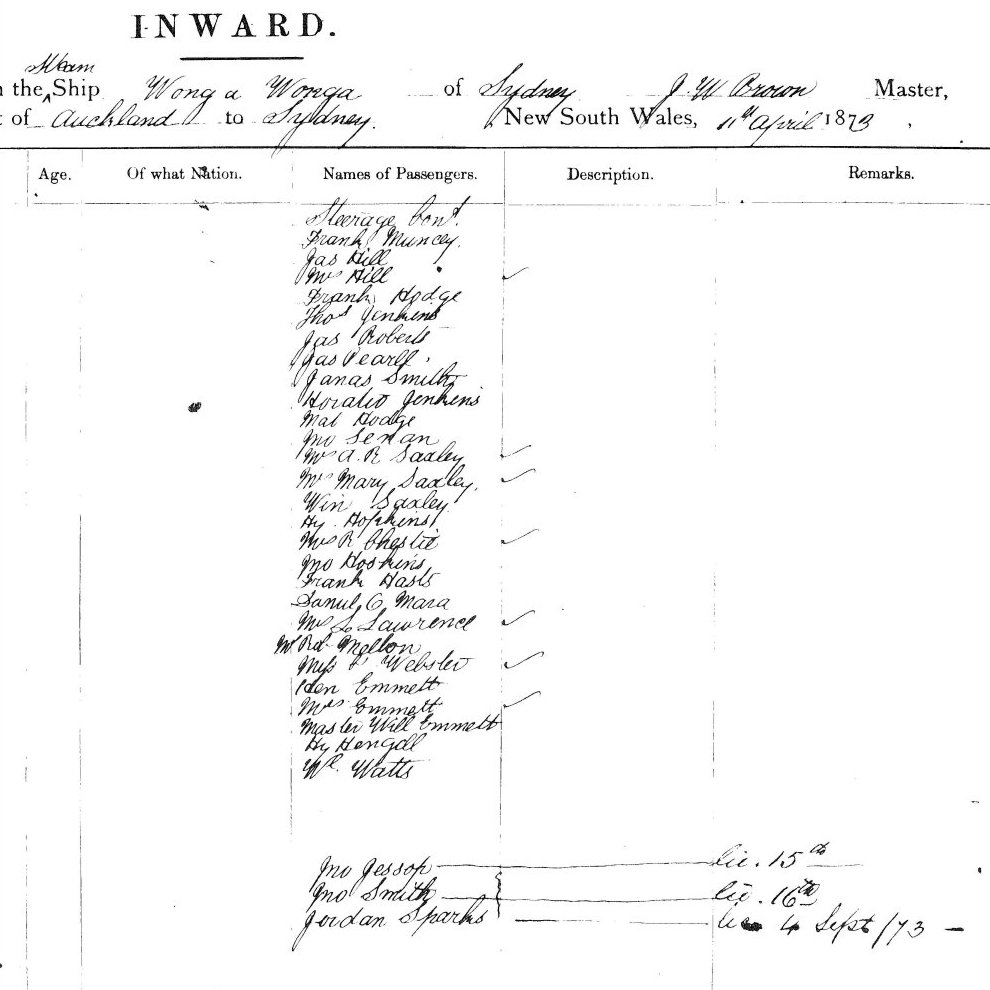 INWARD.
Steam
the Ship Wonga Wonga of Sydney J. W Brown Master,
of Auckland to Sydney. New South Wales, 11th April 1873
Age. Of what Nation. Names of Passengers. Description. Remarks.
Steerage Cond.
Frank Muncey.
Jas Hill
Mrs Hill
Frank Hodge
Thos Jenkins
Jas Roberts
Jas Pearll
Janas Smith
Horatio Jenkins
Mat Hodge
Jno Senan
Mrs A. R Saxley
Mrs Mary Saxley.
Win Saxley
Hy. Hopkins
Mrs R
Jno Hoskins
Frank Hasts
Danul O Mara
Mrs S. Lawrence
Mr Rob Mellon
Miss Webster
Hen Emmett
Mrs Emmett
Master Will Emmett
Hy
Watts
Jno Jessop lic. 15th
Jno Smith lic. 16th
Jordan Sparks 4 Sept/73